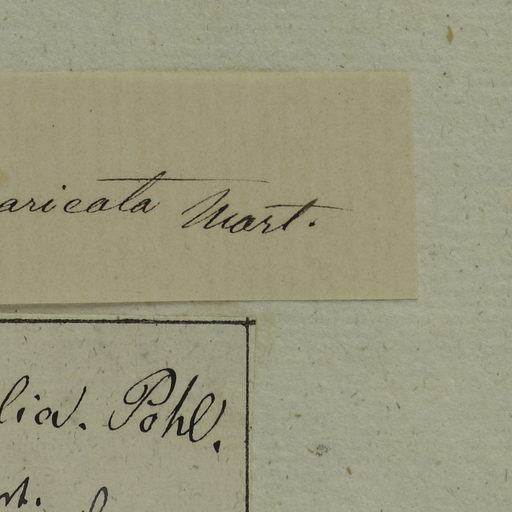 aricata Mart.
lia. Pohl.